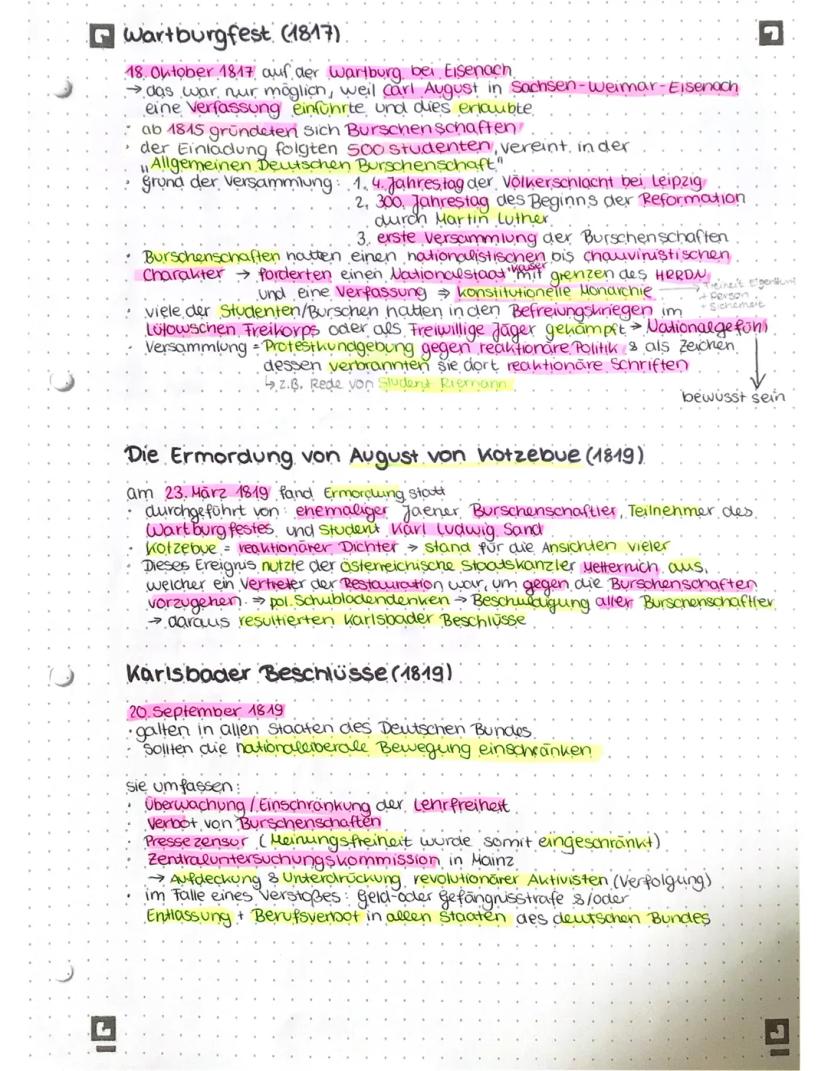 Wartburgfest (1817)
18. Oktober 1817 auf der Wartburg bei Eisenach
→ das war nur möglich, weil Carl August in Sachsen-Weimar-Eisenach
eine Verfassung einführte und dies erlaubte
· ab 1815 gründeten sich Burschenschaften
· der Einladung folgten 500 Studenten, vereint in der
„Allgemeinen Deutschen Burschenschaft"
· Grund der Versammlung: 1. 4. Jahrestag der Völkerschlacht bei Leipzig
2. 300. Jahrestag des Beginns der Reformation
durch Martin Luther
3. erste Versammlung der Burschenschaften
· Burschenschaften hatten einen nationalistischen bis chauvinistischen
Charakter → forderten einen Nationalstaat + Kaiser mit grenzen des HRRDN
und eine Verfassung ⇒ konstitutionelle Monarchie → Freiheit Eigentum
+ Person
+ Sicherheit
· viele der Studenten/Burschen hatten in den Befreiungskriegen im
Lützowschen Freikorps oder als Freiwillige Jäger gekämpft → Nationalgefühl
· Versammlung = Protestkundgebung gegen reaktionäre Politik & als Zeichen
dessen verbrannten sie dort reaktionäre Schriften
↳ z.B. Rede von Student Riemann
bewusst sein
Die Ermordung von August von Kotzebue (1819)
am 23. März 1819 fand Ermordung statt
· durchgeführt von: ehemaliger Jaener Burschenschaftler, Teilnehmer des
Wartburgfestes und Student Karl Ludwig Sand
· Kotzebue = reaktionärer Dichter → stand für die Ansichten vieler
· Dieses Ereignis nutzte der österreichische Staatskanzler Metternich aus,
welcher ein Vertreter der Restauration war, um gegen die Burschenschaften
vorzugehen ⇒ pol. Schubladendenken → Beschuldigung aller Burschenschaftler
→ daraus resultierten Karlsbader Beschlüsse
Karlsbader Beschlüsse (1819)
20. September 1819
· galten in allen Staaten des Deutschen Bundes
· sollten die nationalliberale Bewegung einschränken
sie umfassen:
· Überwachung / Einschränkung der Lehrfreiheit
· Verbot von Burschenschaften
· Pressezensur (Meinungsfreiheit wurde somit eingeschränkt)
· Zentraluntersuchungskommission in Mainz
→ Aufdeckung & Unterdrückung revolutionärer Aktivisten (Verfolgung)
· im Falle eines Verstoßes: Geld- oder Gefängnisstrafe &/oder
Entlassung + Berufsverbot in allen Staaten des deutschen Bundes